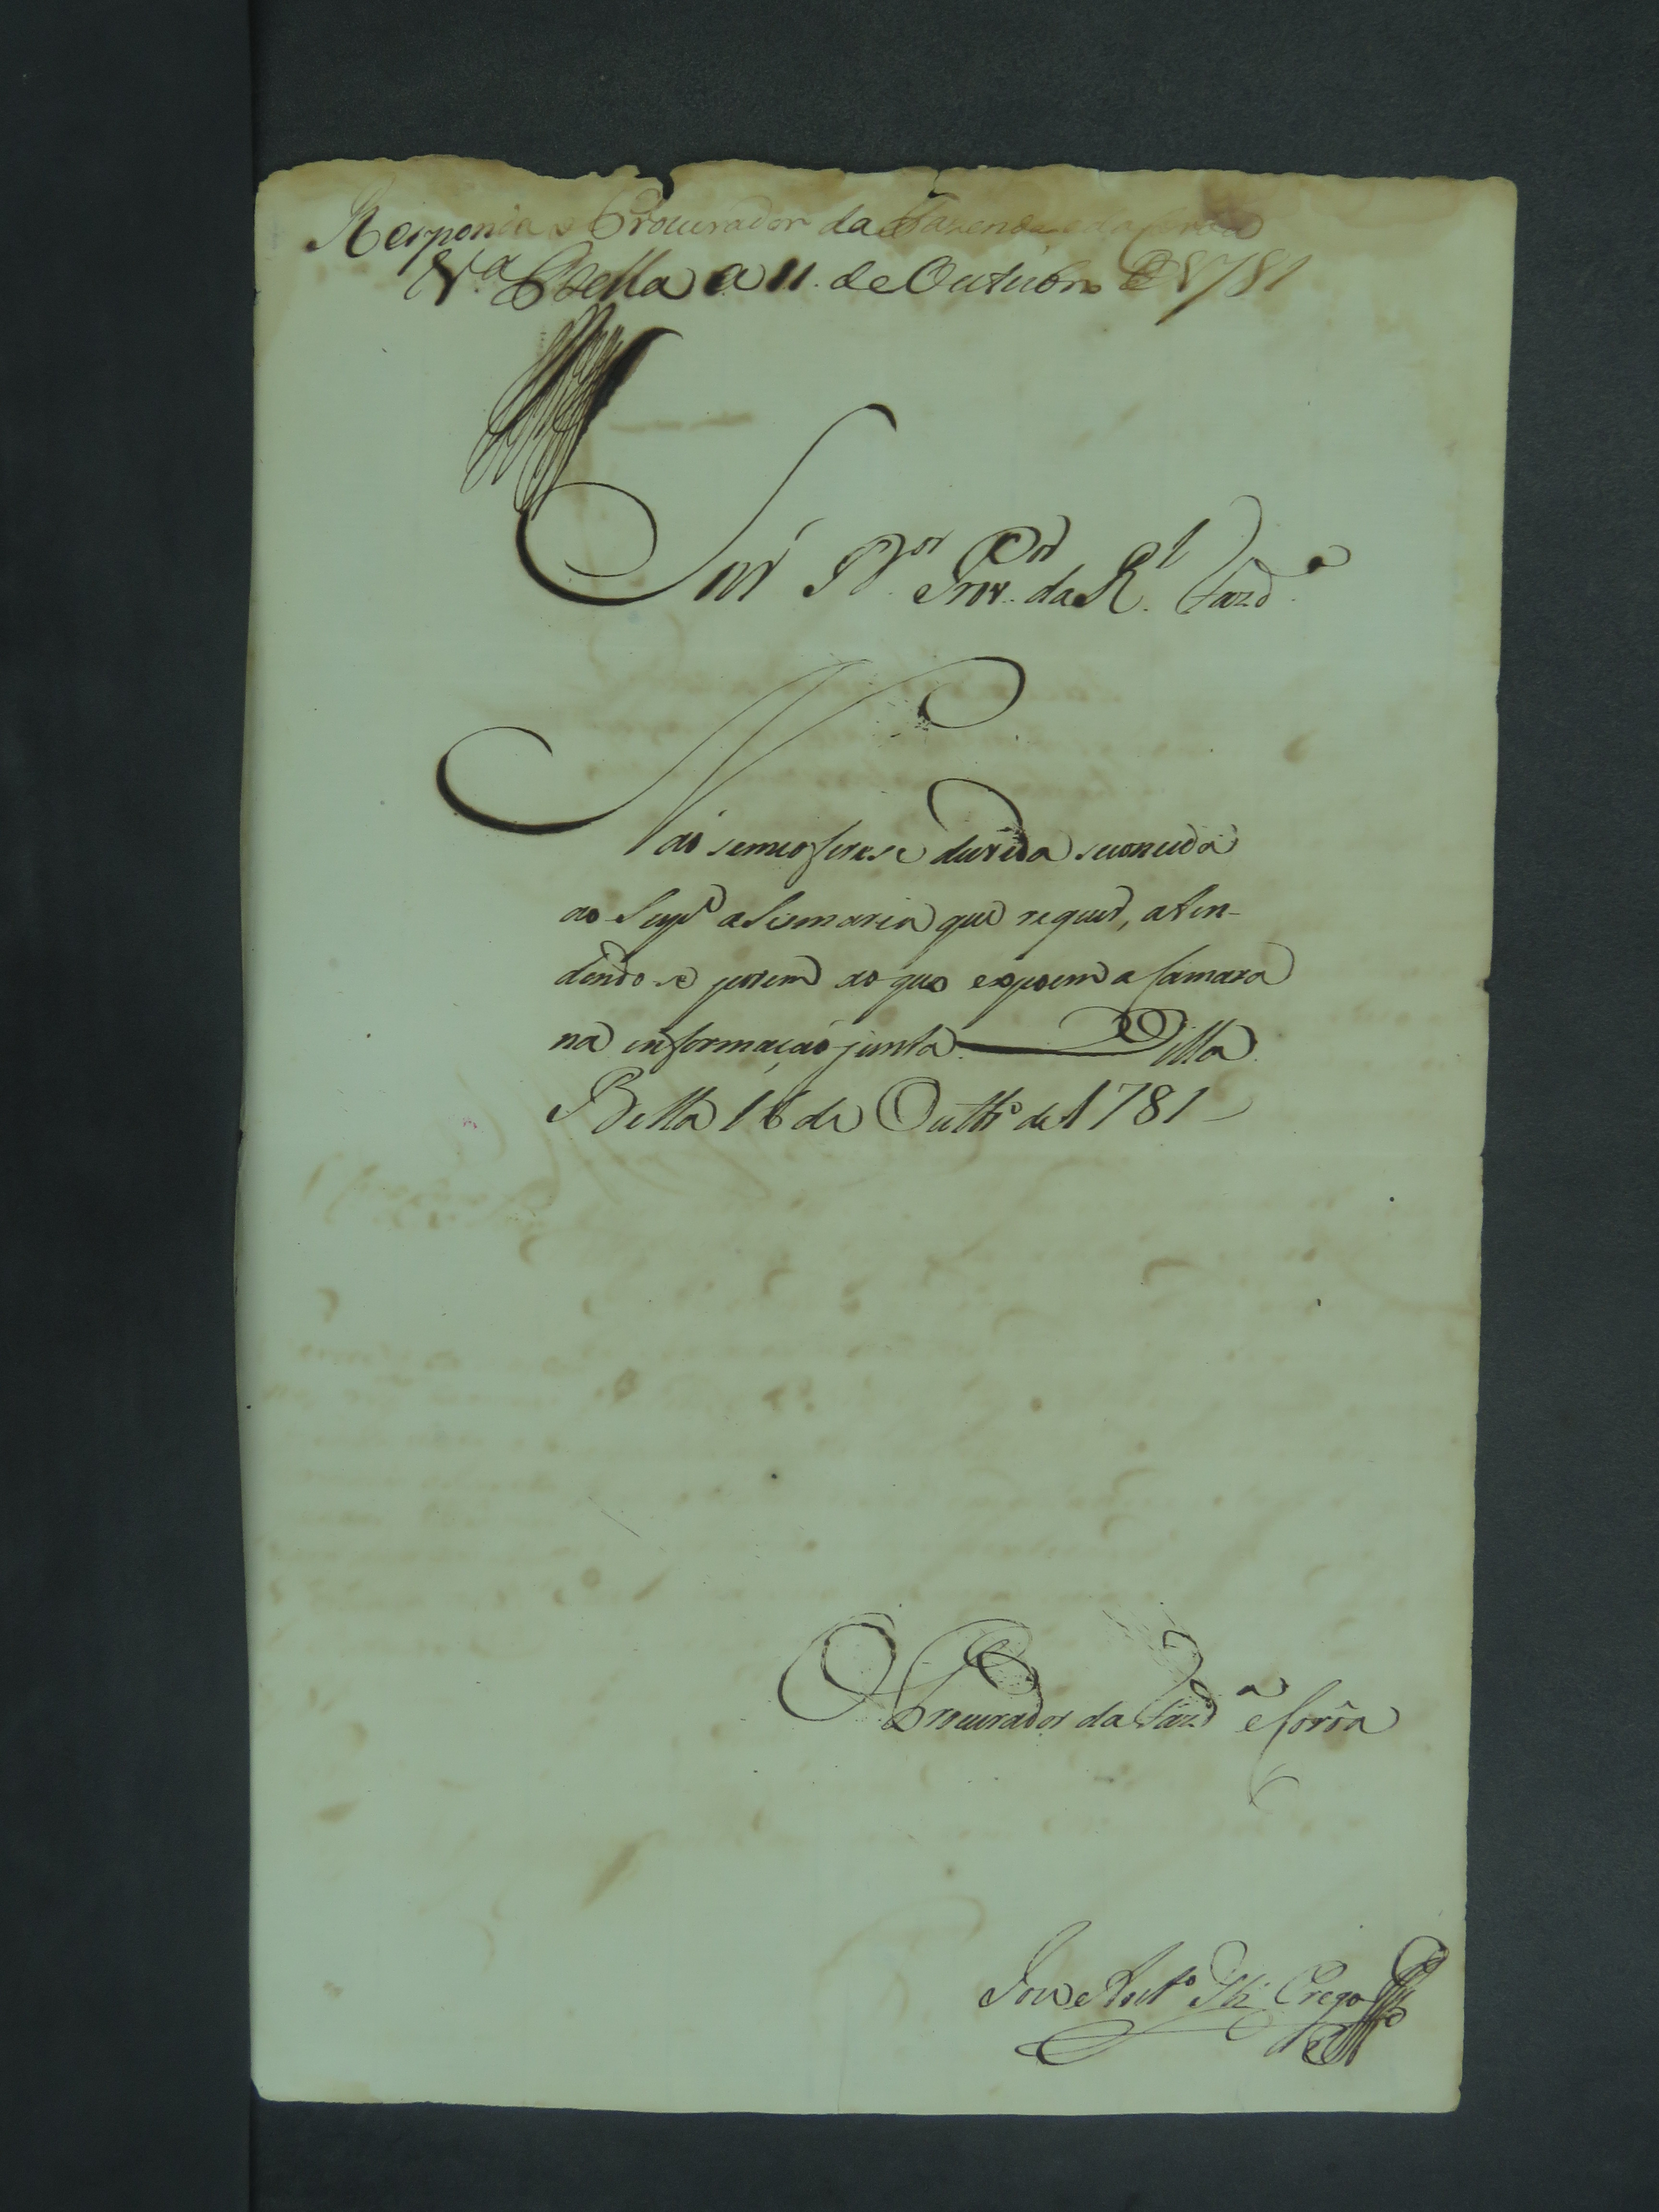 Responda o Procurador da Fazenda, e da Coroa
V.ª Bella a 11. de Outubro de 1781
Snr' D.or Prov.or da R.l Fazd.ª
Não seme oferese duvida seconceda
ao Sup.e a Sismaria que requer, aten-
dendo se porem ao que expoem a Camara
na informação junta. Villa
Bella 16 de Outbr.o de 1781
O Procurador da Fazd.ª e Corôa
Joze Ant.o Crego